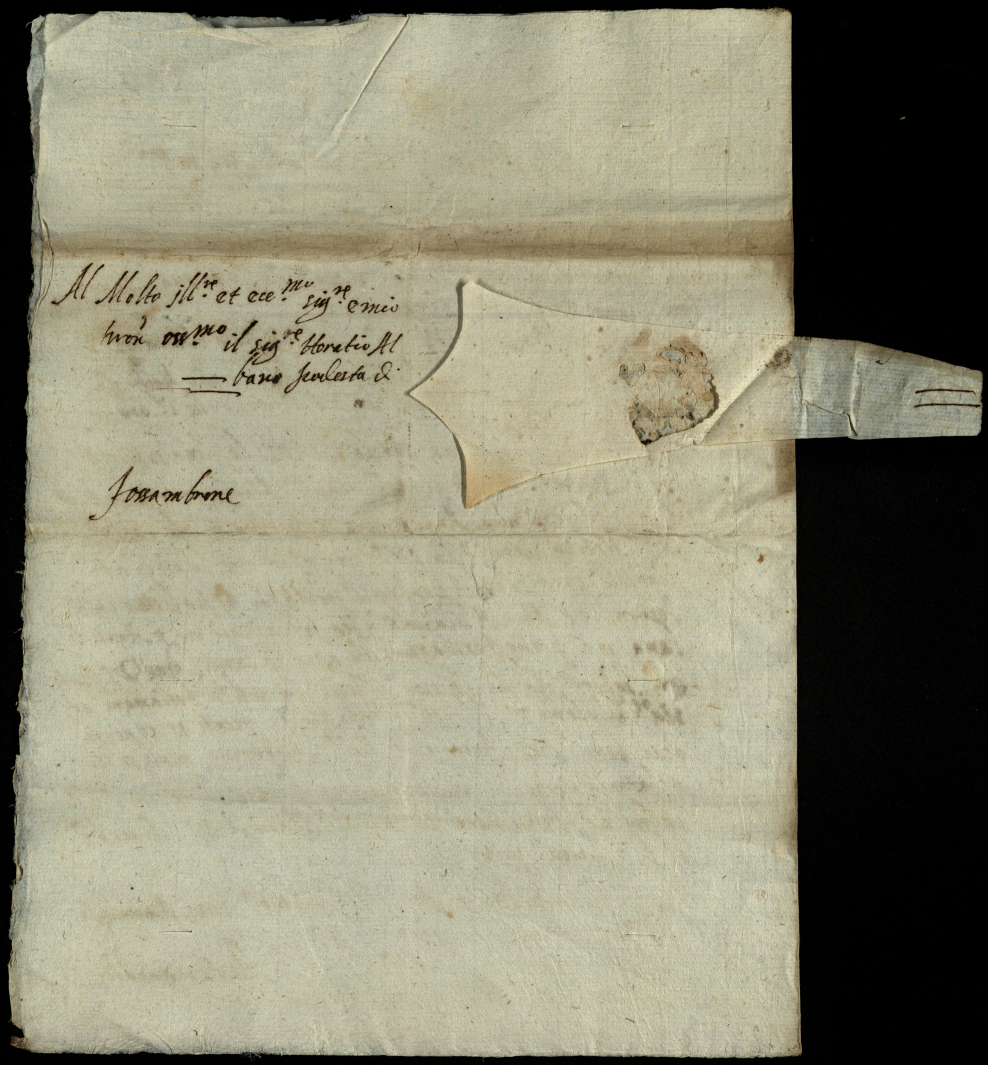 Al Molto Jll.re et ecc.mo sig.re e mio
oss.mo il sig.re Horatio Al
bano Podesta di
Fossambrone